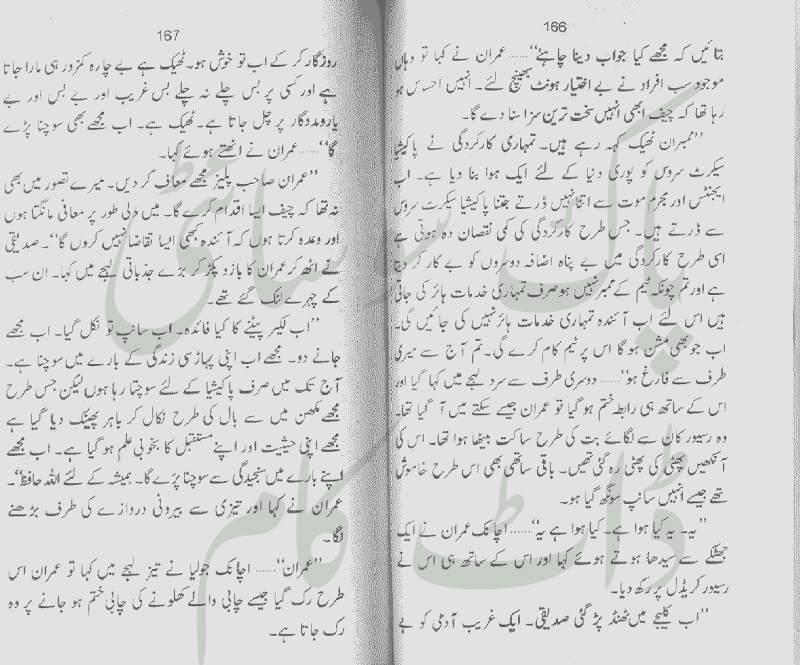 166
بتائیں کہ مجھے کیا جواب دینا چاہئے‘‘...... عمران نے کہا تو وہاں
موجود سب افراد نے بے اختیار ہونٹ بھینچ لئے۔ انہیں احساس ہو
رہا تھا کہ چیف ابھی انہیں سخت ترین سزا سنا دے گا۔
’’ممبران ٹھیک کہہ رہے ہیں۔ تمہاری کارکردگی نے پاکیشیا
سیکرٹ سروس کو پوری دنیا کے لئے ایک ہوا بنا دیا ہے۔ اب
ایجنٹس اور مجرم موت سے اتنا نہیں ڈرتے جتنا پاکیشیا سیکرٹ سروس
سے ڈرتے ہیں۔ جس طرح کارکردگی کی کمی نقصان دہ ہوتی ہے
اسی طرح کارکردگی میں بے پناہ اضافہ دوسروں کو بے کار کر دیتا
ہے اور تم چونکہ ٹیم کے ممبر نہیں ہو صرف تمہاری خدمات ہائر کی جاتی
ہیں اس لئے اب آئندہ تمہاری خدمات ہائر نہیں کی جائیں گی۔
اب جو بھی مشن ہو گا اس پر ٹیم کام کرے گی۔ تم آج سے میری
طرف سے فارغ ہو‘‘...... دوسری طرف سے سرد لہجے میں کہا گیا اور
اس کے ساتھ ہی رابطہ ختم ہو گیا تو عمران جیسے سکتے میں آ گیا تھا۔
وہ رسیور کان سے لگائے بت کی طرح ساکت بیٹھا ہوا تھا۔ اس کی
آنکھیں پھٹی کی پھٹی رہ گئی تھیں۔ باقی ساتھی بھی اس طرح خاموش
تھے جیسے انہیں سانپ سونگھ گیا ہو۔
’’یہ۔ یہ کیا ہوا ہے۔ کیا ہوا ہے یہ‘‘...... اچانک عمران نے ایک
جھٹکے سے سیدھا ہوتے ہوئے کہا اور اس کے ساتھ ہی اس نے
رسیور کریڈل پر رکھ دیا۔
’’اب کلیجے میں ٹھنڈ پڑ گئی صدیقی۔ ایک غریب آدمی کو بے
167
روزگار کر کے اب تو خوش ہو۔ ٹھیک ہے بے چارہ کمزور ہی مارا جاتا
ہے اور کسی پر بس چلے نہ چلے بس غریب اور بے بس اور بے
یارومددگار پر چل جاتا ہے۔ ٹھیک ہے۔ اب مجھے بھی سوچنا پڑے
گا‘‘...... عمران نے اٹھتے ہوئے کہا۔
’’عمران صاحب پلیز مجھے معاف کر دیں۔ میرے تصور میں بھی
نہ تھا کہ چیف ایسا اقدام کرے گا۔ میں دلی طور پر معافی مانگتا ہوں
اور وعدہ کرتا ہوں کہ آئندہ بھی ایسا تقاضا نہیں کروں گا‘‘۔ صدیقی
نے اٹھ کر عمران کا بازو پکڑ کر بڑے جذباتی لہجے میں کہا۔ ان سب
کے چہرے لٹک گئے تھے۔
’’اب لکیر پیٹنے کا کیا فائدہ۔ اب سانپ تو نکل گیا۔ اب مجھے
جانے دو۔ مجھے اب اپنی پہاڑ سی زندگی کے بارے میں سوچنا ہے۔
آج تک میں صرف پاکیشیا کے لئے سوچتا رہا ہوں لیکن جس طرح
مجھے مکھن میں سے بال کی طرح نکال کر باہر پھینک دیا گیا ہے
مجھے اپنی حیثیت اور اپنے مستقبل کا بخوبی علم ہو گیا ہے۔ اب مجھے
اپنے بارے میں سنجیدگی سے سوچنا پڑے گا۔ ہمیشہ کے لئے اللہ حافظ‘‘۔
عمران نے کہا اور تیزی سے بیرونی دروازے کی طرف بڑھنے
لگا۔
’’عمران‘‘...... اچانک جولیا نے تیز لہجے میں کہا تو عمران اس
طرح رک گیا جیسے چابی والے کھلونے کی چابی ختم ہو جانے پر وہ
رک جاتا ہے۔